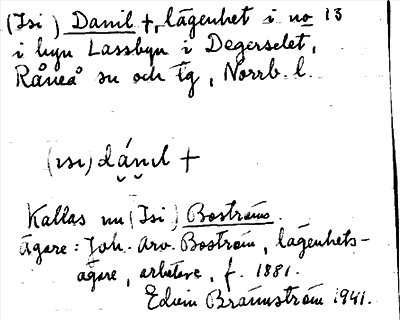 (Isi) Danil +, lägenhet i no 13
i byn Lassbyn i Degerselet,
Råneå sn och tg, Norrb. l.
(ısı) dánıl +
Kallas nu (Isi) Boströms.
Ägare: Joh. Arv. Boström, lägenhets-
ägare, arbetare, f. 1881.
Edvin Brännström 1941.